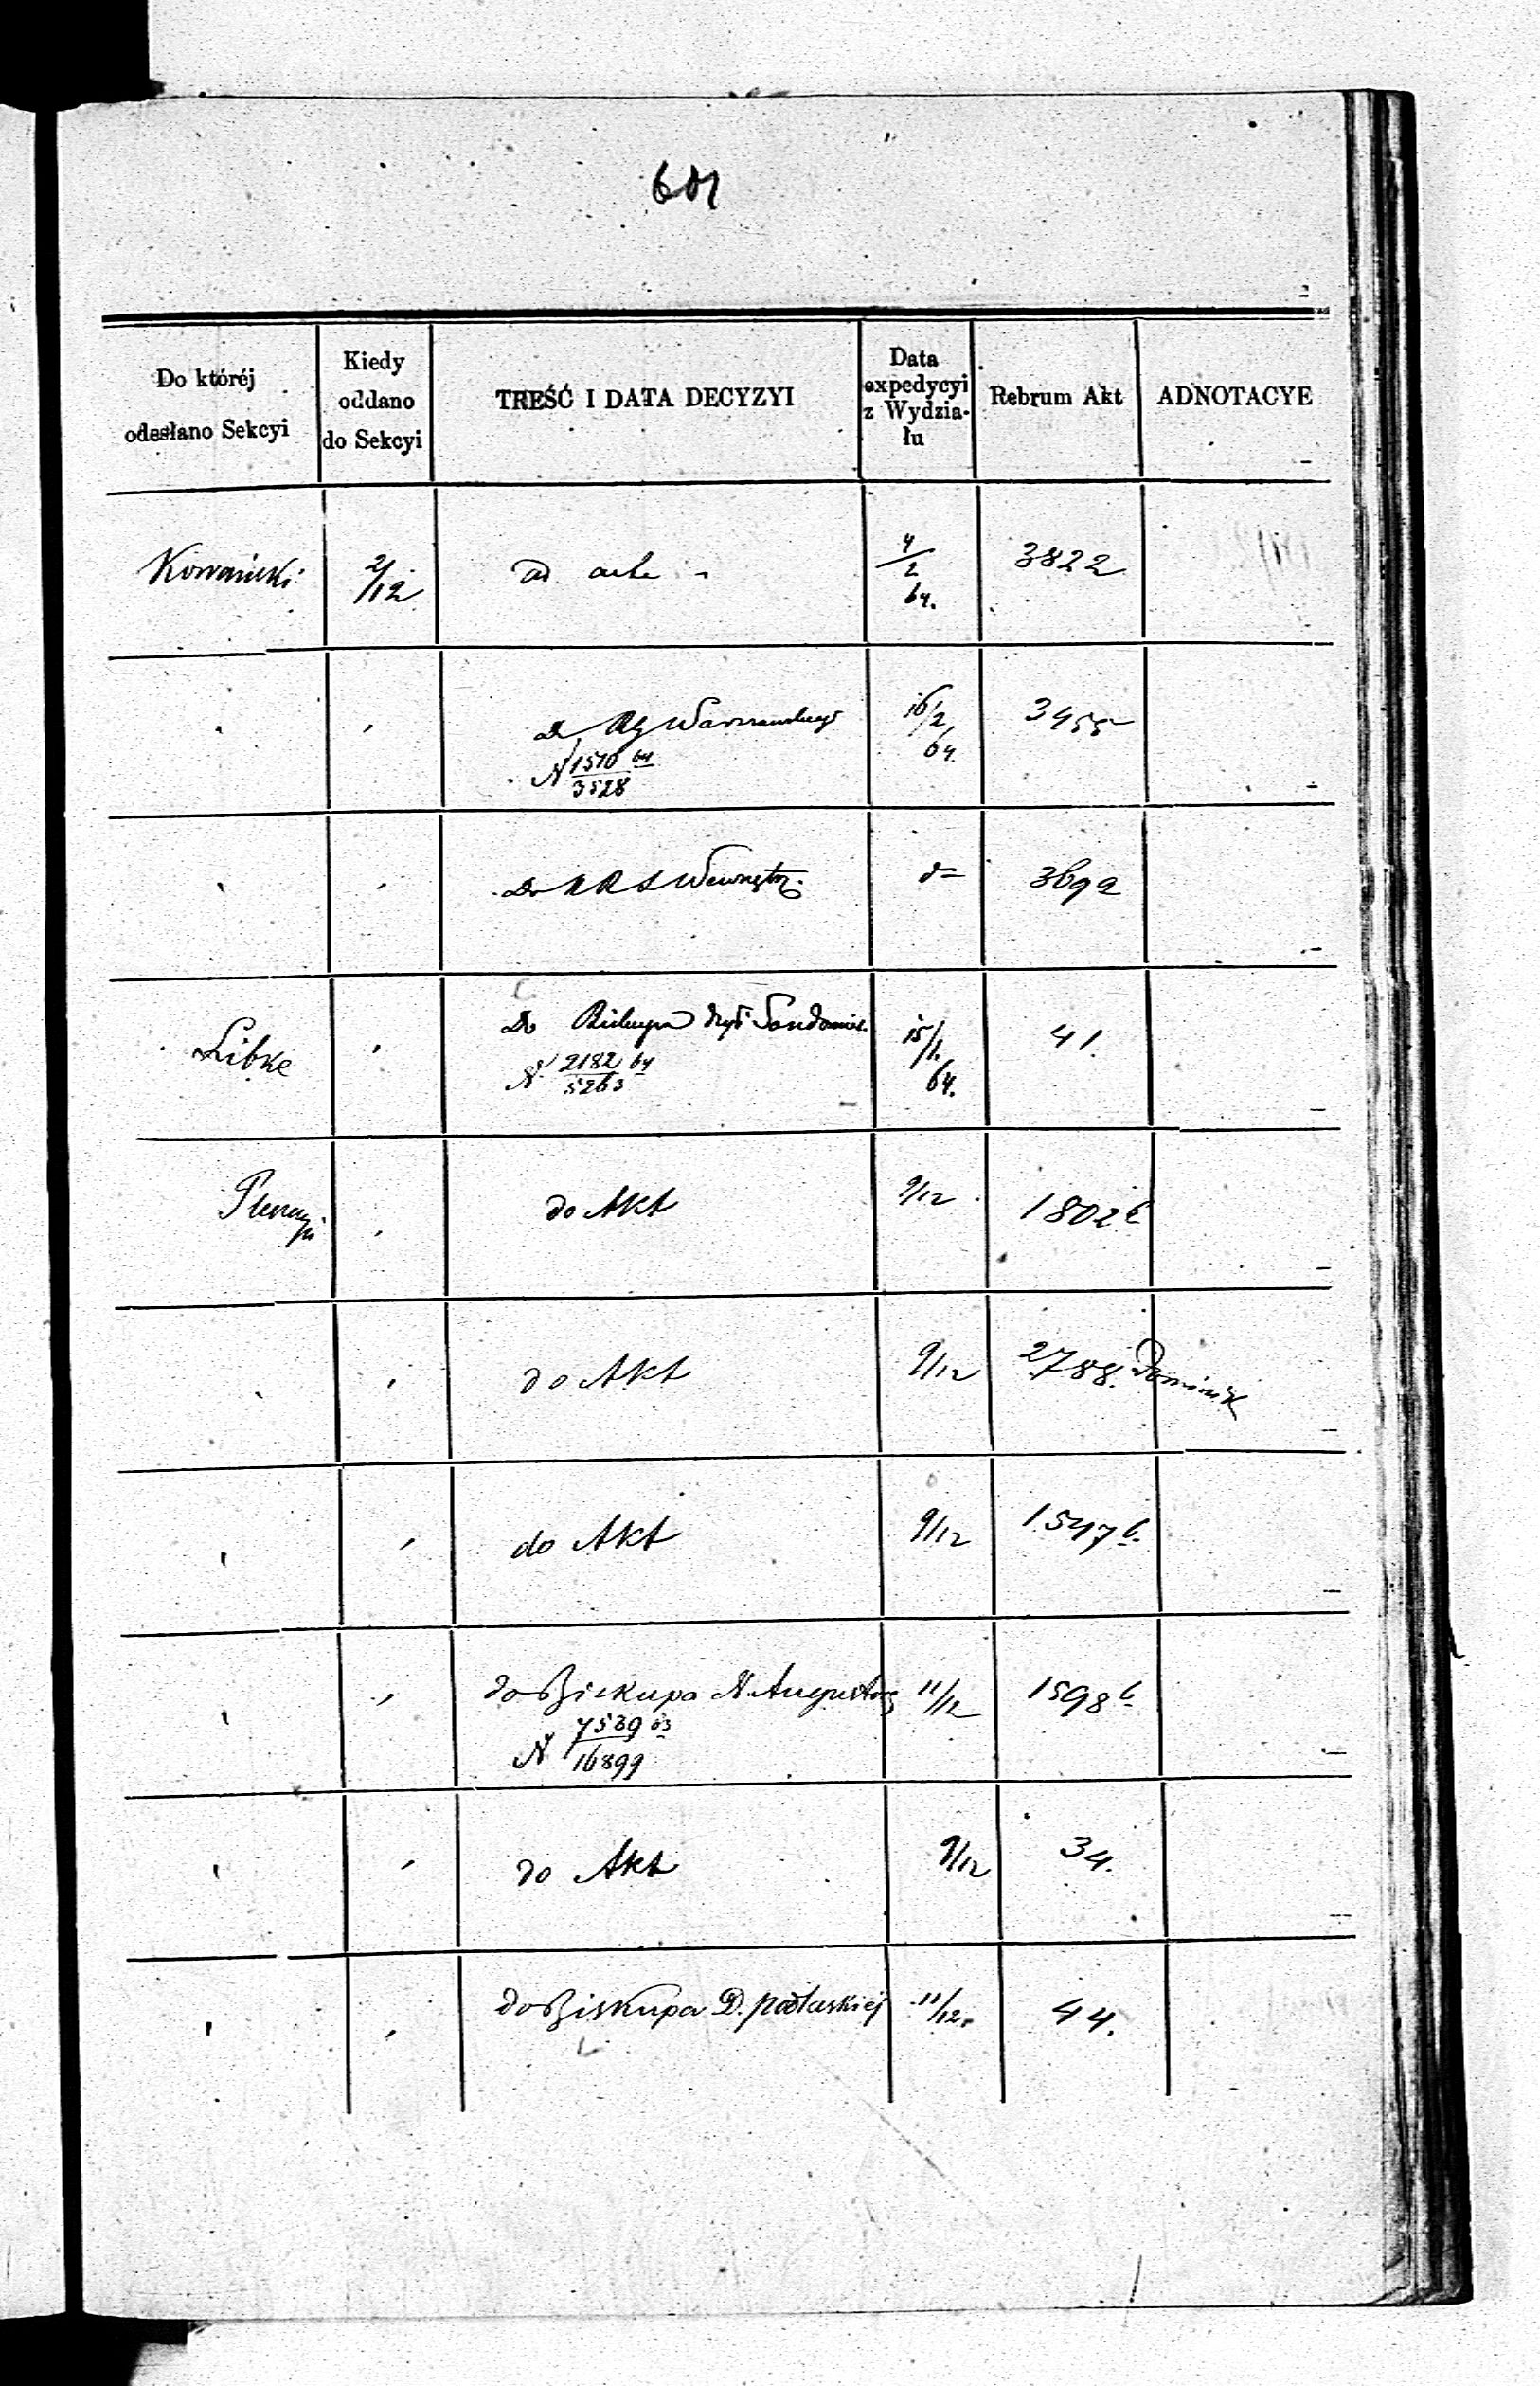 601
Do któréj odesłano Sekcyi
Kiedy oddano do Sekcyi
TREŚĆ I DATA DECYZYI
Data expedycyi z Wydzia-łu
Rebrum Akt
ADNOTACYE
2/12 ad acta 4/2 64. 3822
do RG Warszawskiego 16/2 64. 3455
N 1510 64 / 3528
Do KRS Wewnętrz. d= 3692
Libke Do Biskupa Dyec Sandomir. 15/1. 64. 41.
N 2182 64 / 5263
do Akt 9/12 1802 b
do Akt 9/12 2788. Dominik
do Akt 9/12 1547 b.
do Biskupa N. Augustow 11/12 1598 b
N 7539 63 / 16899
do Akt 9/12 34.
do Biskupa D. podlaskiej 11/12. 44.